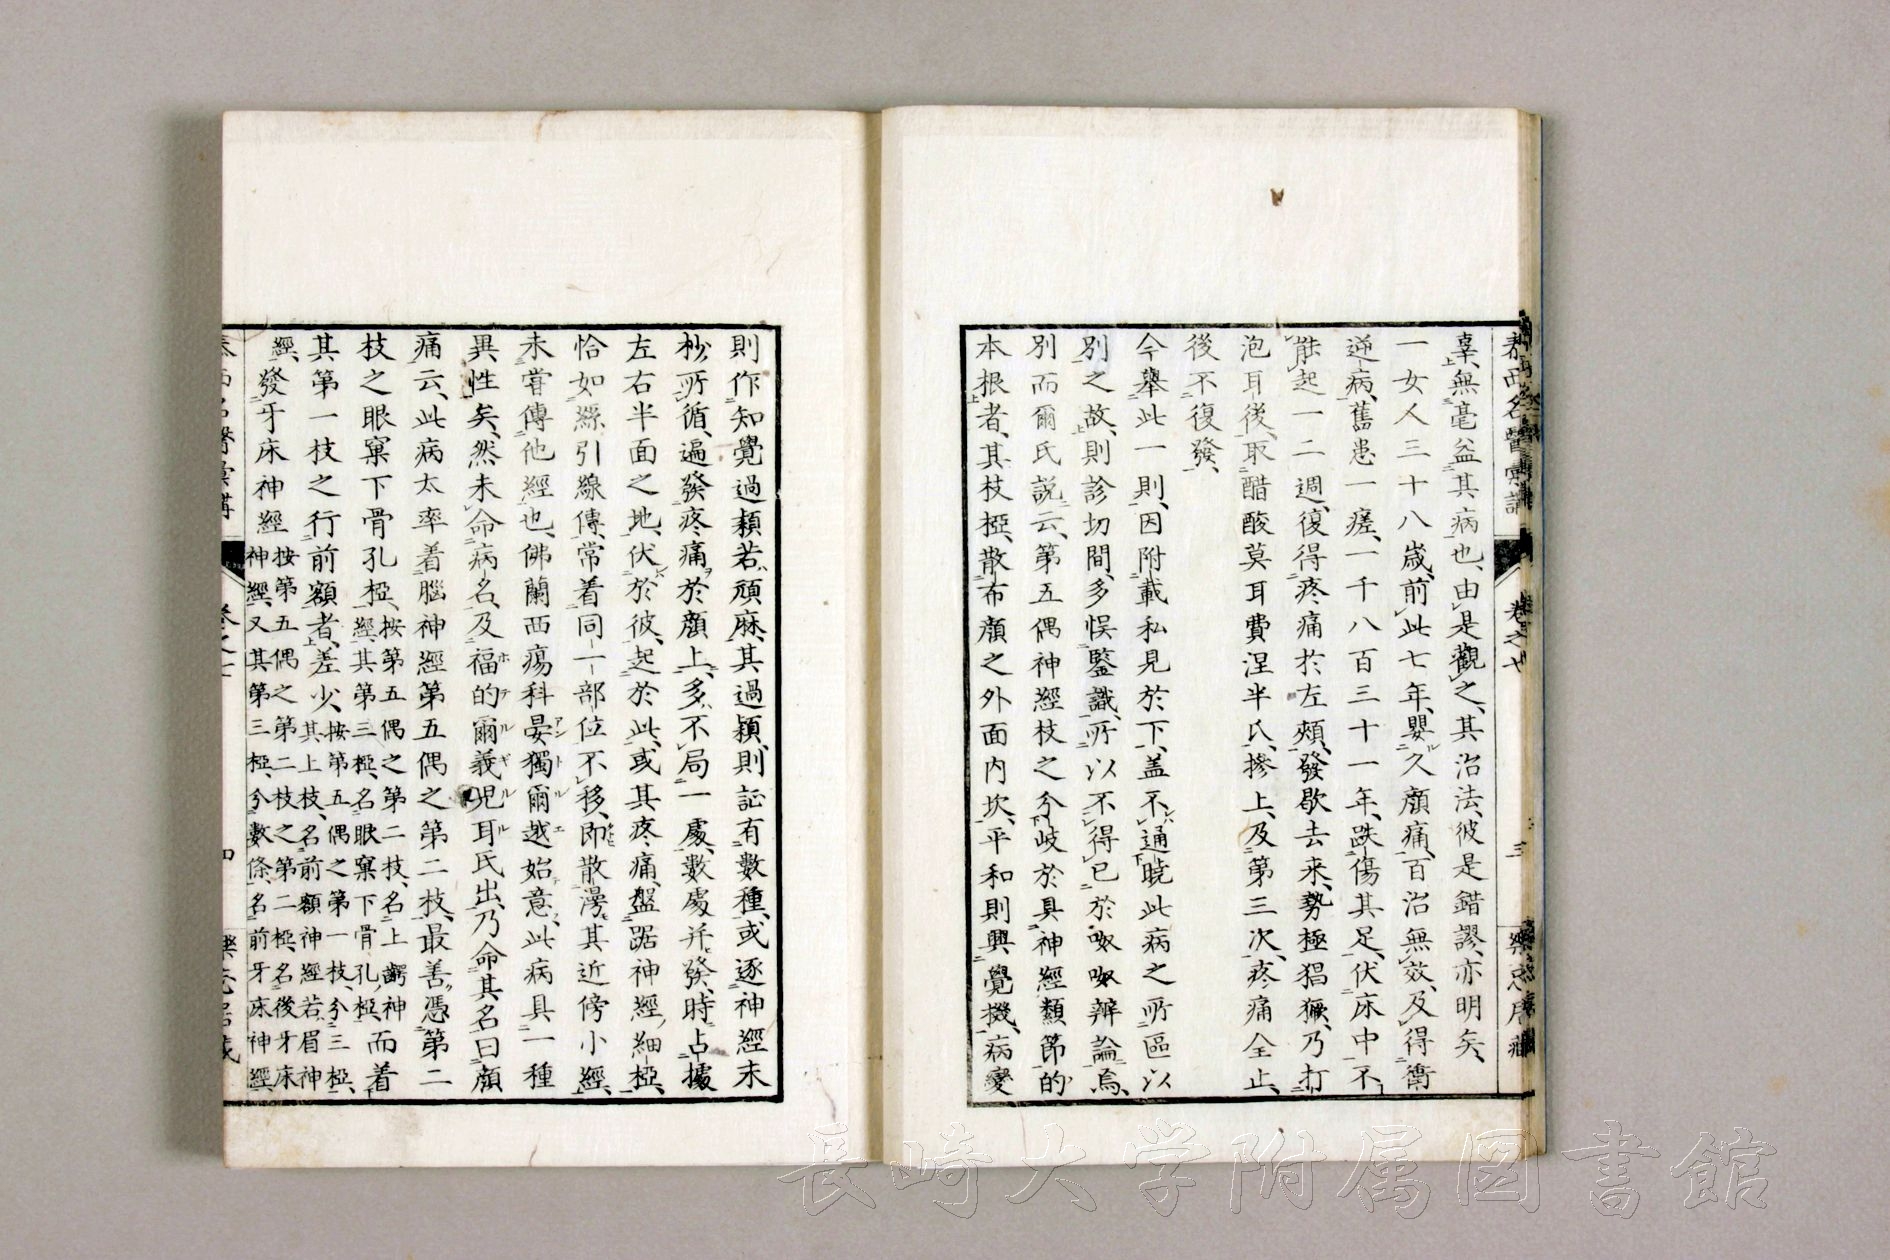 泰西名醫彙講 卷之七 三
辜、無毫益其病也、由是觀之、其治法、彼是錯謬、亦明矣、
一女人三十八歲、前此七年、嬰久顏痛、百治無效、及得衝
逆病、舊患一瘥、一千八百三十一年、跌傷其足、伏床中不
能起一二週、復得疼痛於左頰、發歇去来、勢極猖獗、乃打
泡耳後、取醋酸莫耳費涅半氏、摻上、及第三次、疼痛全止、
後不復發、
今舉此一則、因附載私見於下、蓋不通曉此病之所區以
別之故、則診切間、多悞鑒識、所以不得已於呶呶辨論焉、
別而爾氏説云、第五偶神經枝之分岐於具神經類節的
本根者、其枝椏、散布顏之外面内坎、平和則興覺機、病變
則作知覺過額若、頑麻、其過穎、則証有數種、或逐神經末
杪、所循、遍發疼痛於顏上、多不局一處、數處并發、時占據
左右半面之地、伏於彼、起於此、或其疼痛、盤踞神經細椏、
恰如繇引線傳、常着同一部位不移、即散漫其近傍小經、
未嘗傳他經也、佛蘭西瘍科晏獨爾越始意、此病具一種
異性矣、然未命病名、及福的爾義児耳氏出、乃命其名曰顏
痛云、此病太率着腦神經第五偶之第二枝、最善憑第二
枝之眼窠下骨孔椏、經、按第五偶之第二枝、名上齶神經、其第三椏、名眼窠下骨孔椏、而着
其第一枝之行前額者、差少、按第五偶之第一枝、分三椏、其上枝、名前額神經若眉神
經、發牙床神經 按第五偶之第二枝之第二椏、名後牙床神經、又其第三椏、分數條、名前牙床神經
卷之七 四